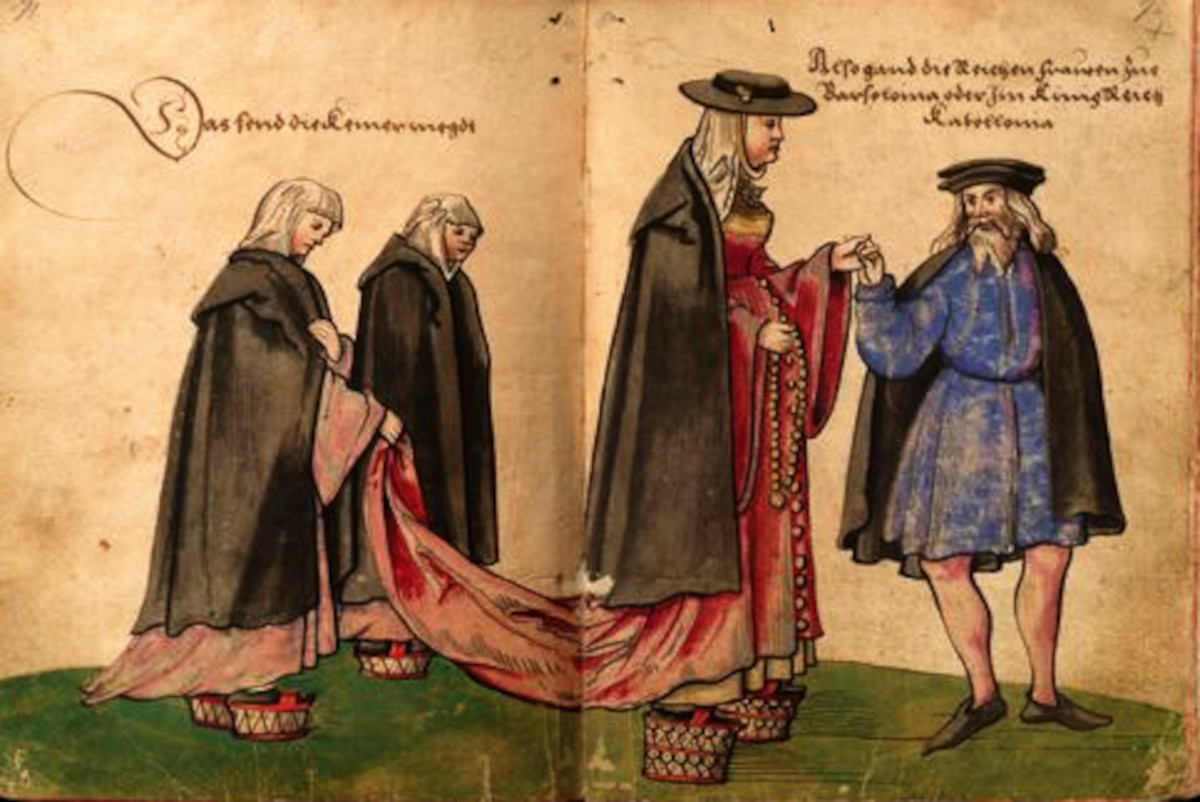 Das send die Kemer megdt
Also gand die Reichen frawen zue
Barselonia oder Im Kunig Reich
Katellonia